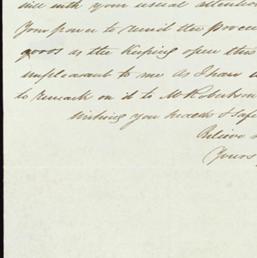 will with your usual attention
Your power to remit the proceeds
goods as the keeping open this
unpleasant to me as I have
to remark on it to Mr Robertson
Wishing you health & safe
Believe
Yours